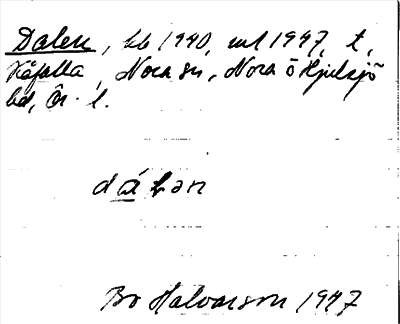 Dalen, bb 1940, ml 1947, t,
Kåfalla, Nora sn, Nora ö Hjulsjö
bd, Ör. l.
dálən
Bo Halvarson 1947